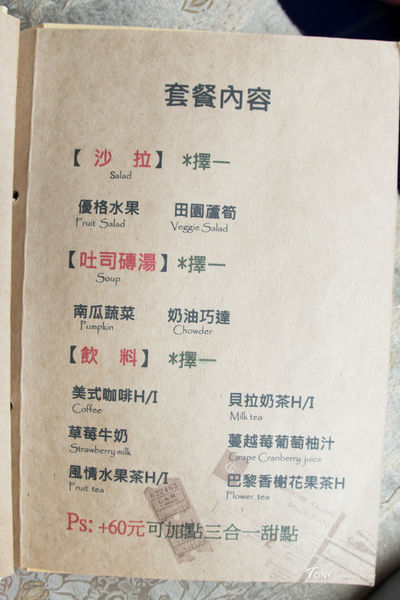 套餐內容
【沙 拉】 *擇一
Salad
優格水果 田園蘆筍
Fruit Salad Veggie Salad
【吐司磚湯】*擇一
Soup
南瓜蔬菜 奶油巧達
Pumpkin Chowder
【飲 料】 *擇一
美式咖啡H/I 貝拉奶茶H/I
Coffee Milk tea
草莓牛奶 蔓越莓葡萄柚汁
Strawberry milk Grape Cranberry juice
風情水果茶H/I 巴黎香榭花果茶H
Fruit tea Flower tea
Ps: +60元可加點三合一甜點
TONY